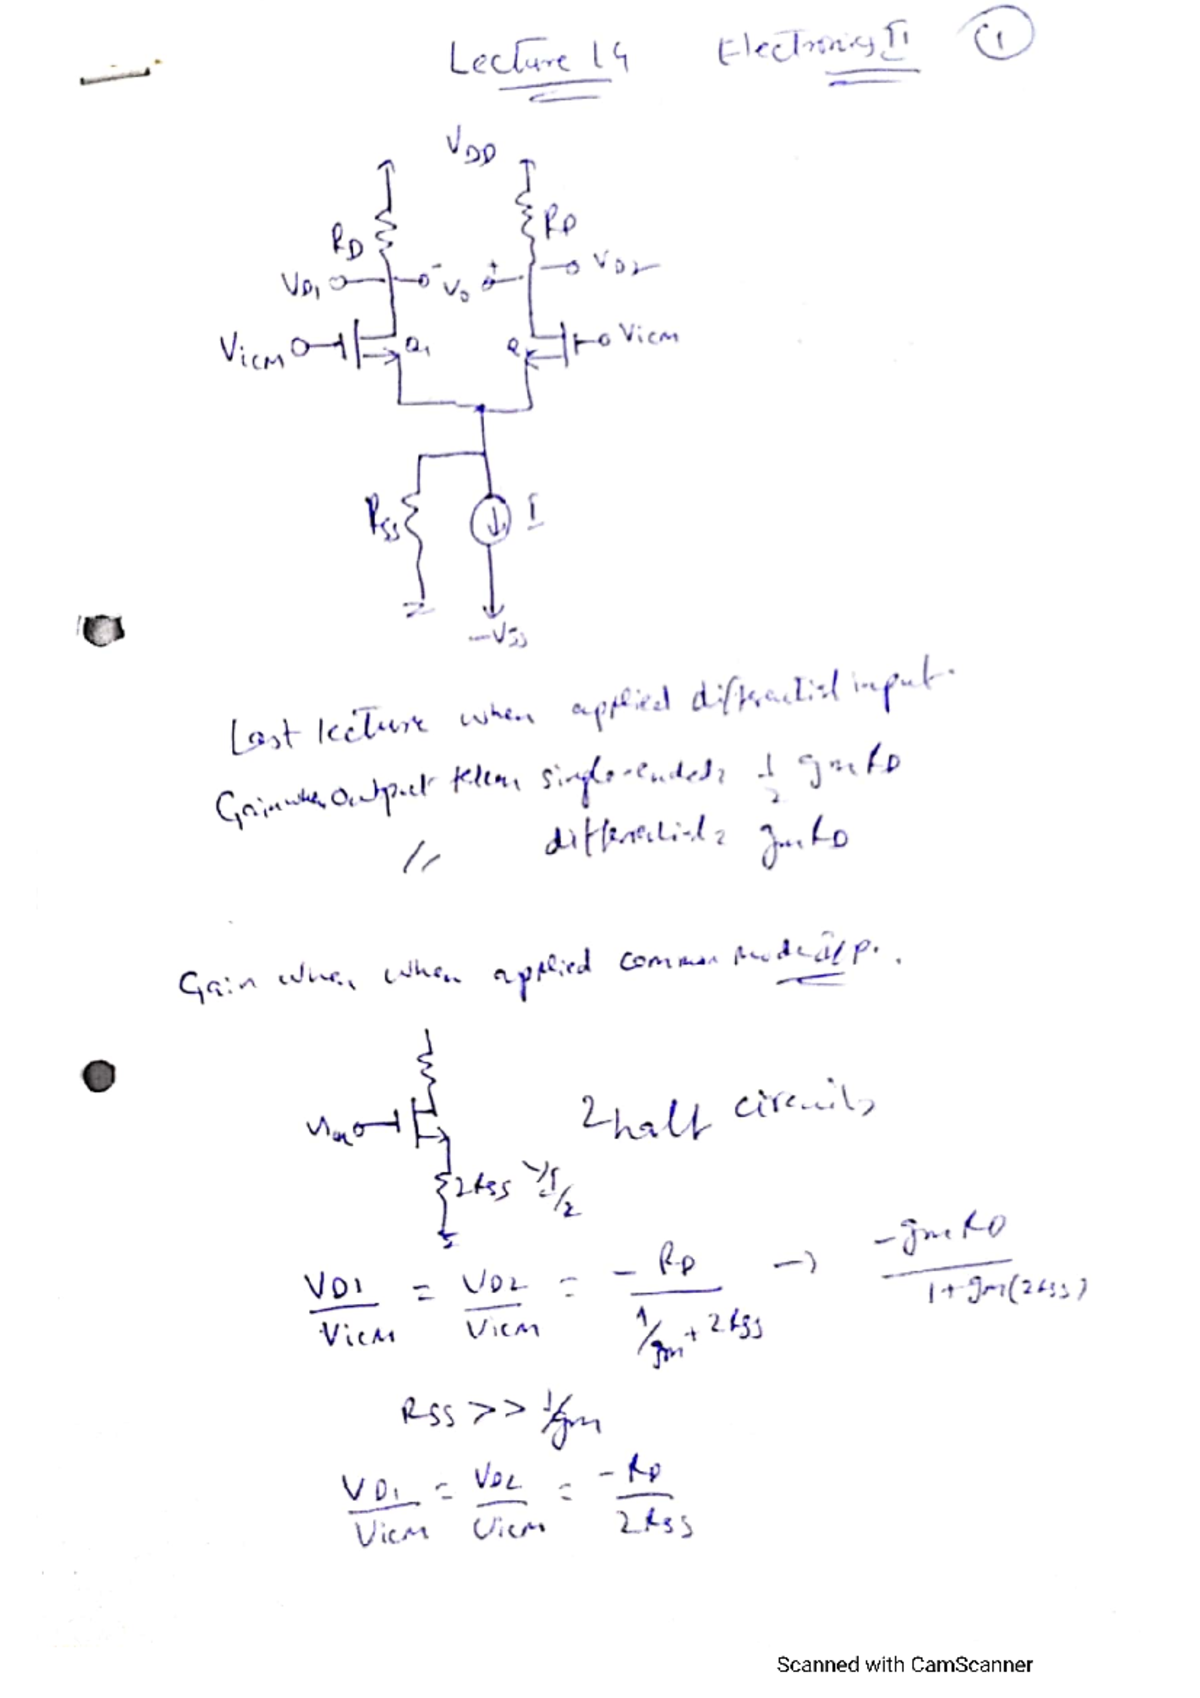 Lecture 14 Electronics II 1
VDD
RD RD
VD1 - Vo + VD2
VICM Q1 Q VICM
RSS I
-VSS
Last lecture when applied differential input.
Gain when output taken single-ended = 1/2 gm RD
// differential = gm RD
Gain when when applied common mode i/p.
2 half circuits
2RSS
VD1/VICM = VD2/VICM = -RD/(1/gm + 2RSS) → -gm RD/(1+gm(2RSS))
RSS >> 1/gm
VD1/VICM = VD2/VICM = -RD/2RSS
Scanned with CamScanner